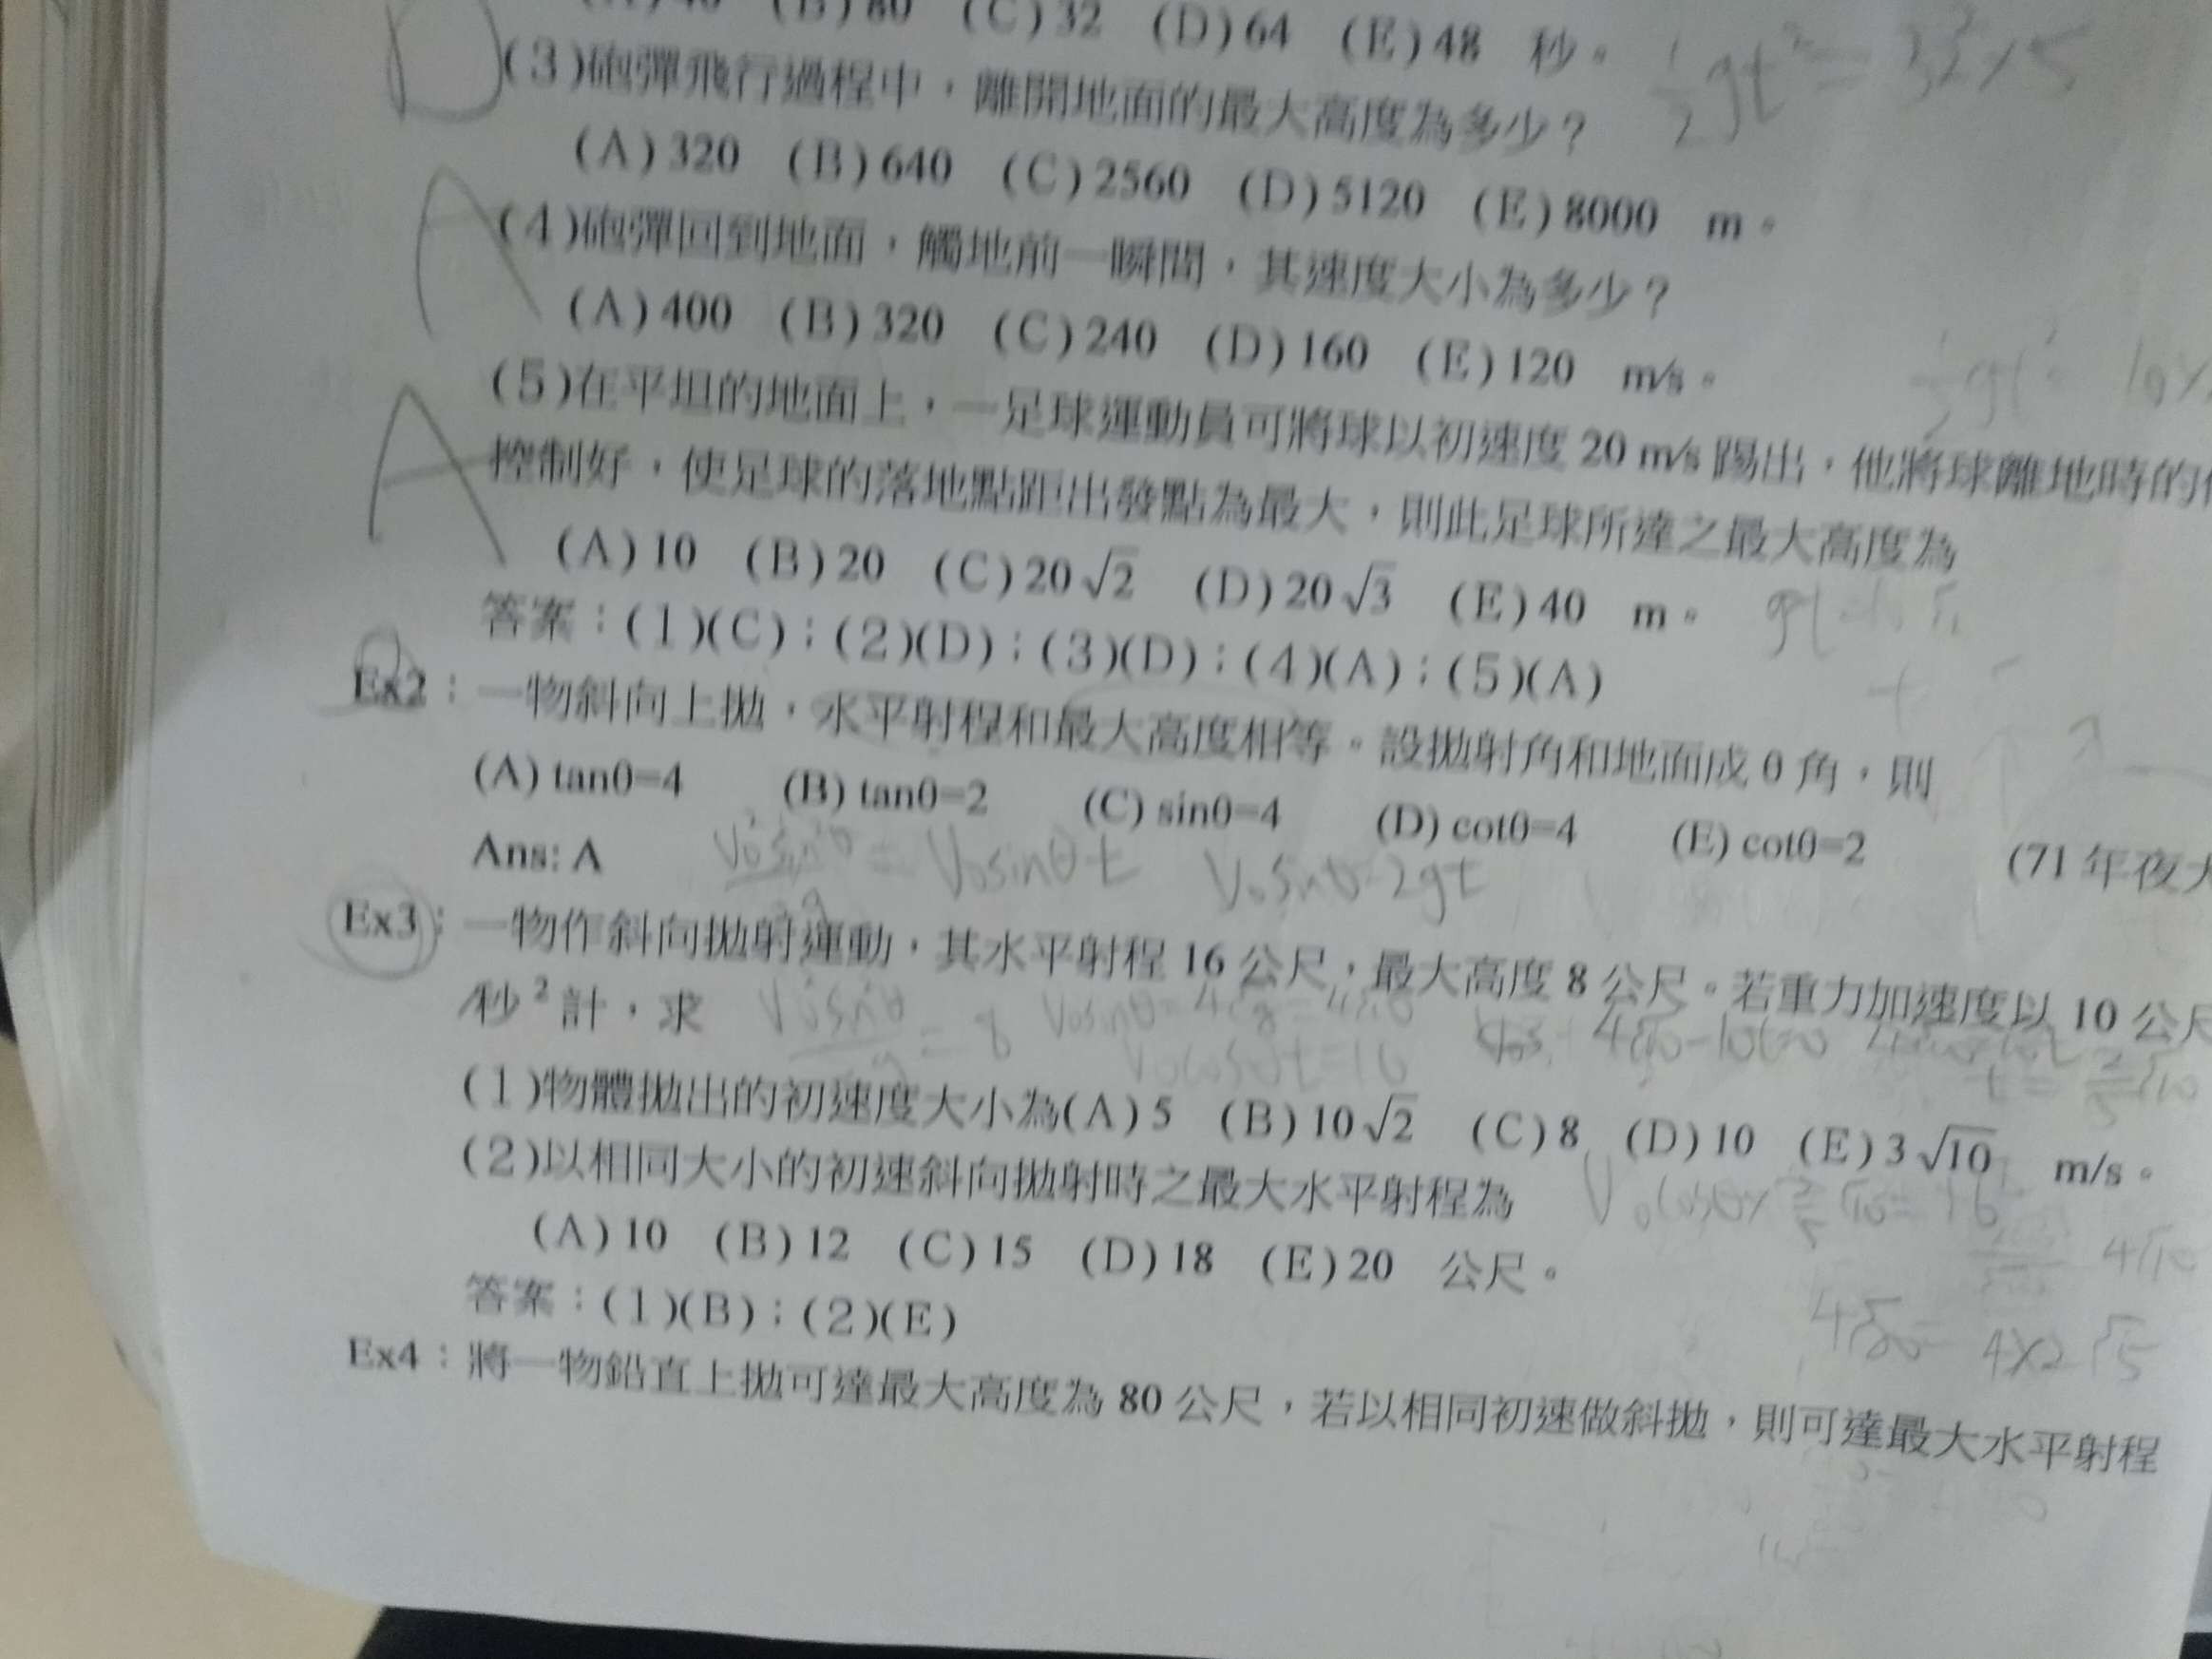 (B)80 (C)32 (D)64 (E)48 秒。
(3)砲彈飛行過程中，離開地面的最大高度為多少？
½gt²=32²×5
(A)320 (B)640 (C)2560 (D)5120 (E)8000 m。
(4)砲彈回到地面，觸地前一瞬間，其速度大小為多少？
(A)400 (B)320 (C)240 (D)160 (E)120 m/s。
(5)在平坦的地面上，一足球運動員可將球以初速度20 m/s踢出，他將球離地時的
控制好，使足球的落地點距出發點為最大，則此足球所達之最大高度為
(A)10 (B)20 (C)20√2 (D)20√3 (E)40 m。
答案：(1)(C)；(2)(D)；(3)(D)；(4)(A)；(5)(A)
Ex2：一物斜向上拋，水平射程和最大高度相等。設拋射角和地面成θ角，則
(A) tanθ=4 (B) tanθ=2 (C) sinθ=4 (D) cotθ=4 (E) cotθ=2 (71年夜大
Ans: A
V₀sinθt V₀sinθ-2gt
Ex3：一物作斜向拋射運動，其水平射程16公尺，最大高度8公尺。若重力加速度以10公尺
/秒²計，求
V₀cosθt=16
(1)物體拋出的初速度大小為(A)5 (B)10√2 (C)8 (D)10 (E)3√10 m/s。
(2)以相同大小的初速斜向拋射時之最大水平射程為
(A)10 (B)12 (C)15 (D)18 (E)20 公尺。
答案：(1)(B)；(2)(E)
4×2√5
Ex4：將一物鉛直上拋可達最大高度為80公尺，若以相同初速做斜拋，則可達最大水平射程